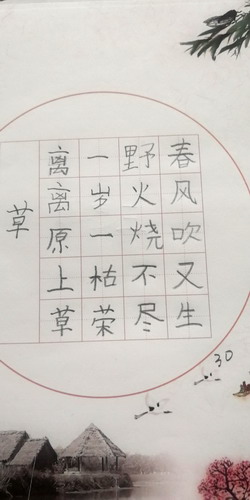 草
离离原上草
一岁一枯荣
野火烧不尽
春风吹又生
30